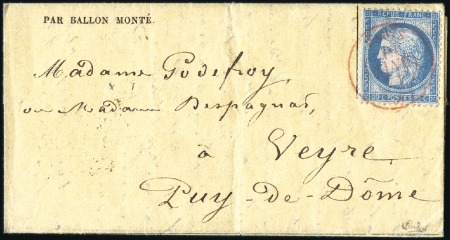 PAR BALLON MONTÉ.
REPUB. FRANC.
Madame Godefroy
ou Madame Despagnat,
à Veyre
Puy-de-Dôme